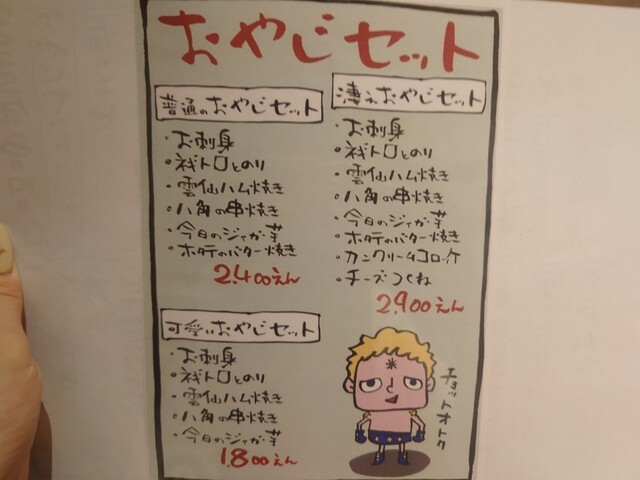 おやじセット
普通のおやじセット
・お刺身
・桟トロとのり
・雲仙ハム焼き
・八角の串焼き
・今日のジャガ芋
・ホタテのバター焼き
2.400えん
凄えおやじセット
・お刺身
・桟トロとのり
・雲仙ハム焼き
・八角の串焼き
・今日のジャガ芋
・ホタテのバター焼き
・カニクリームコロッケ
・チーズつくね
2,900えん
可愛いおやじセット
・お刺身
・桟トロとのり
・雲仙ハム焼き
・八角の串焼き
・今日のジャガ芋
1.800えん
チョットオトク